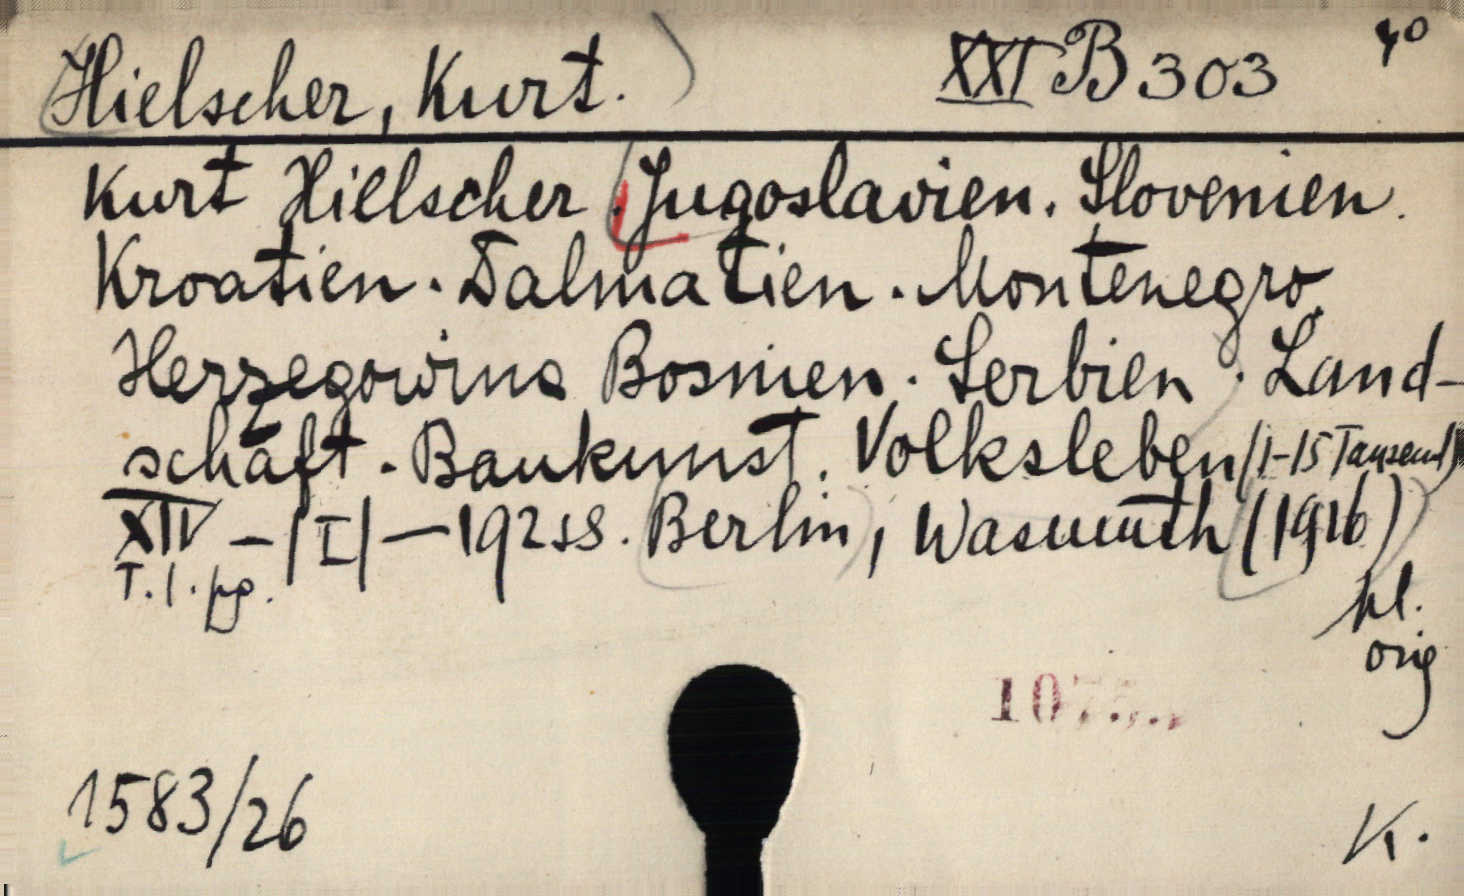 Hielscher, Kurt. XXI B 303 4º
Kurt Hielscher. Jugoslavien. Slovenien.
Kroatien. Dalmatien. Montenegro.
Herzegowina Bosnien. Serbien. Land-
schaft. Baukunst. Volksleben (1-15 Tausend)
XIV - |I| - 192 SS. Berlin, Wasmuth (1926)
T. l. pg.
pł.
oryg
1583/26
K.